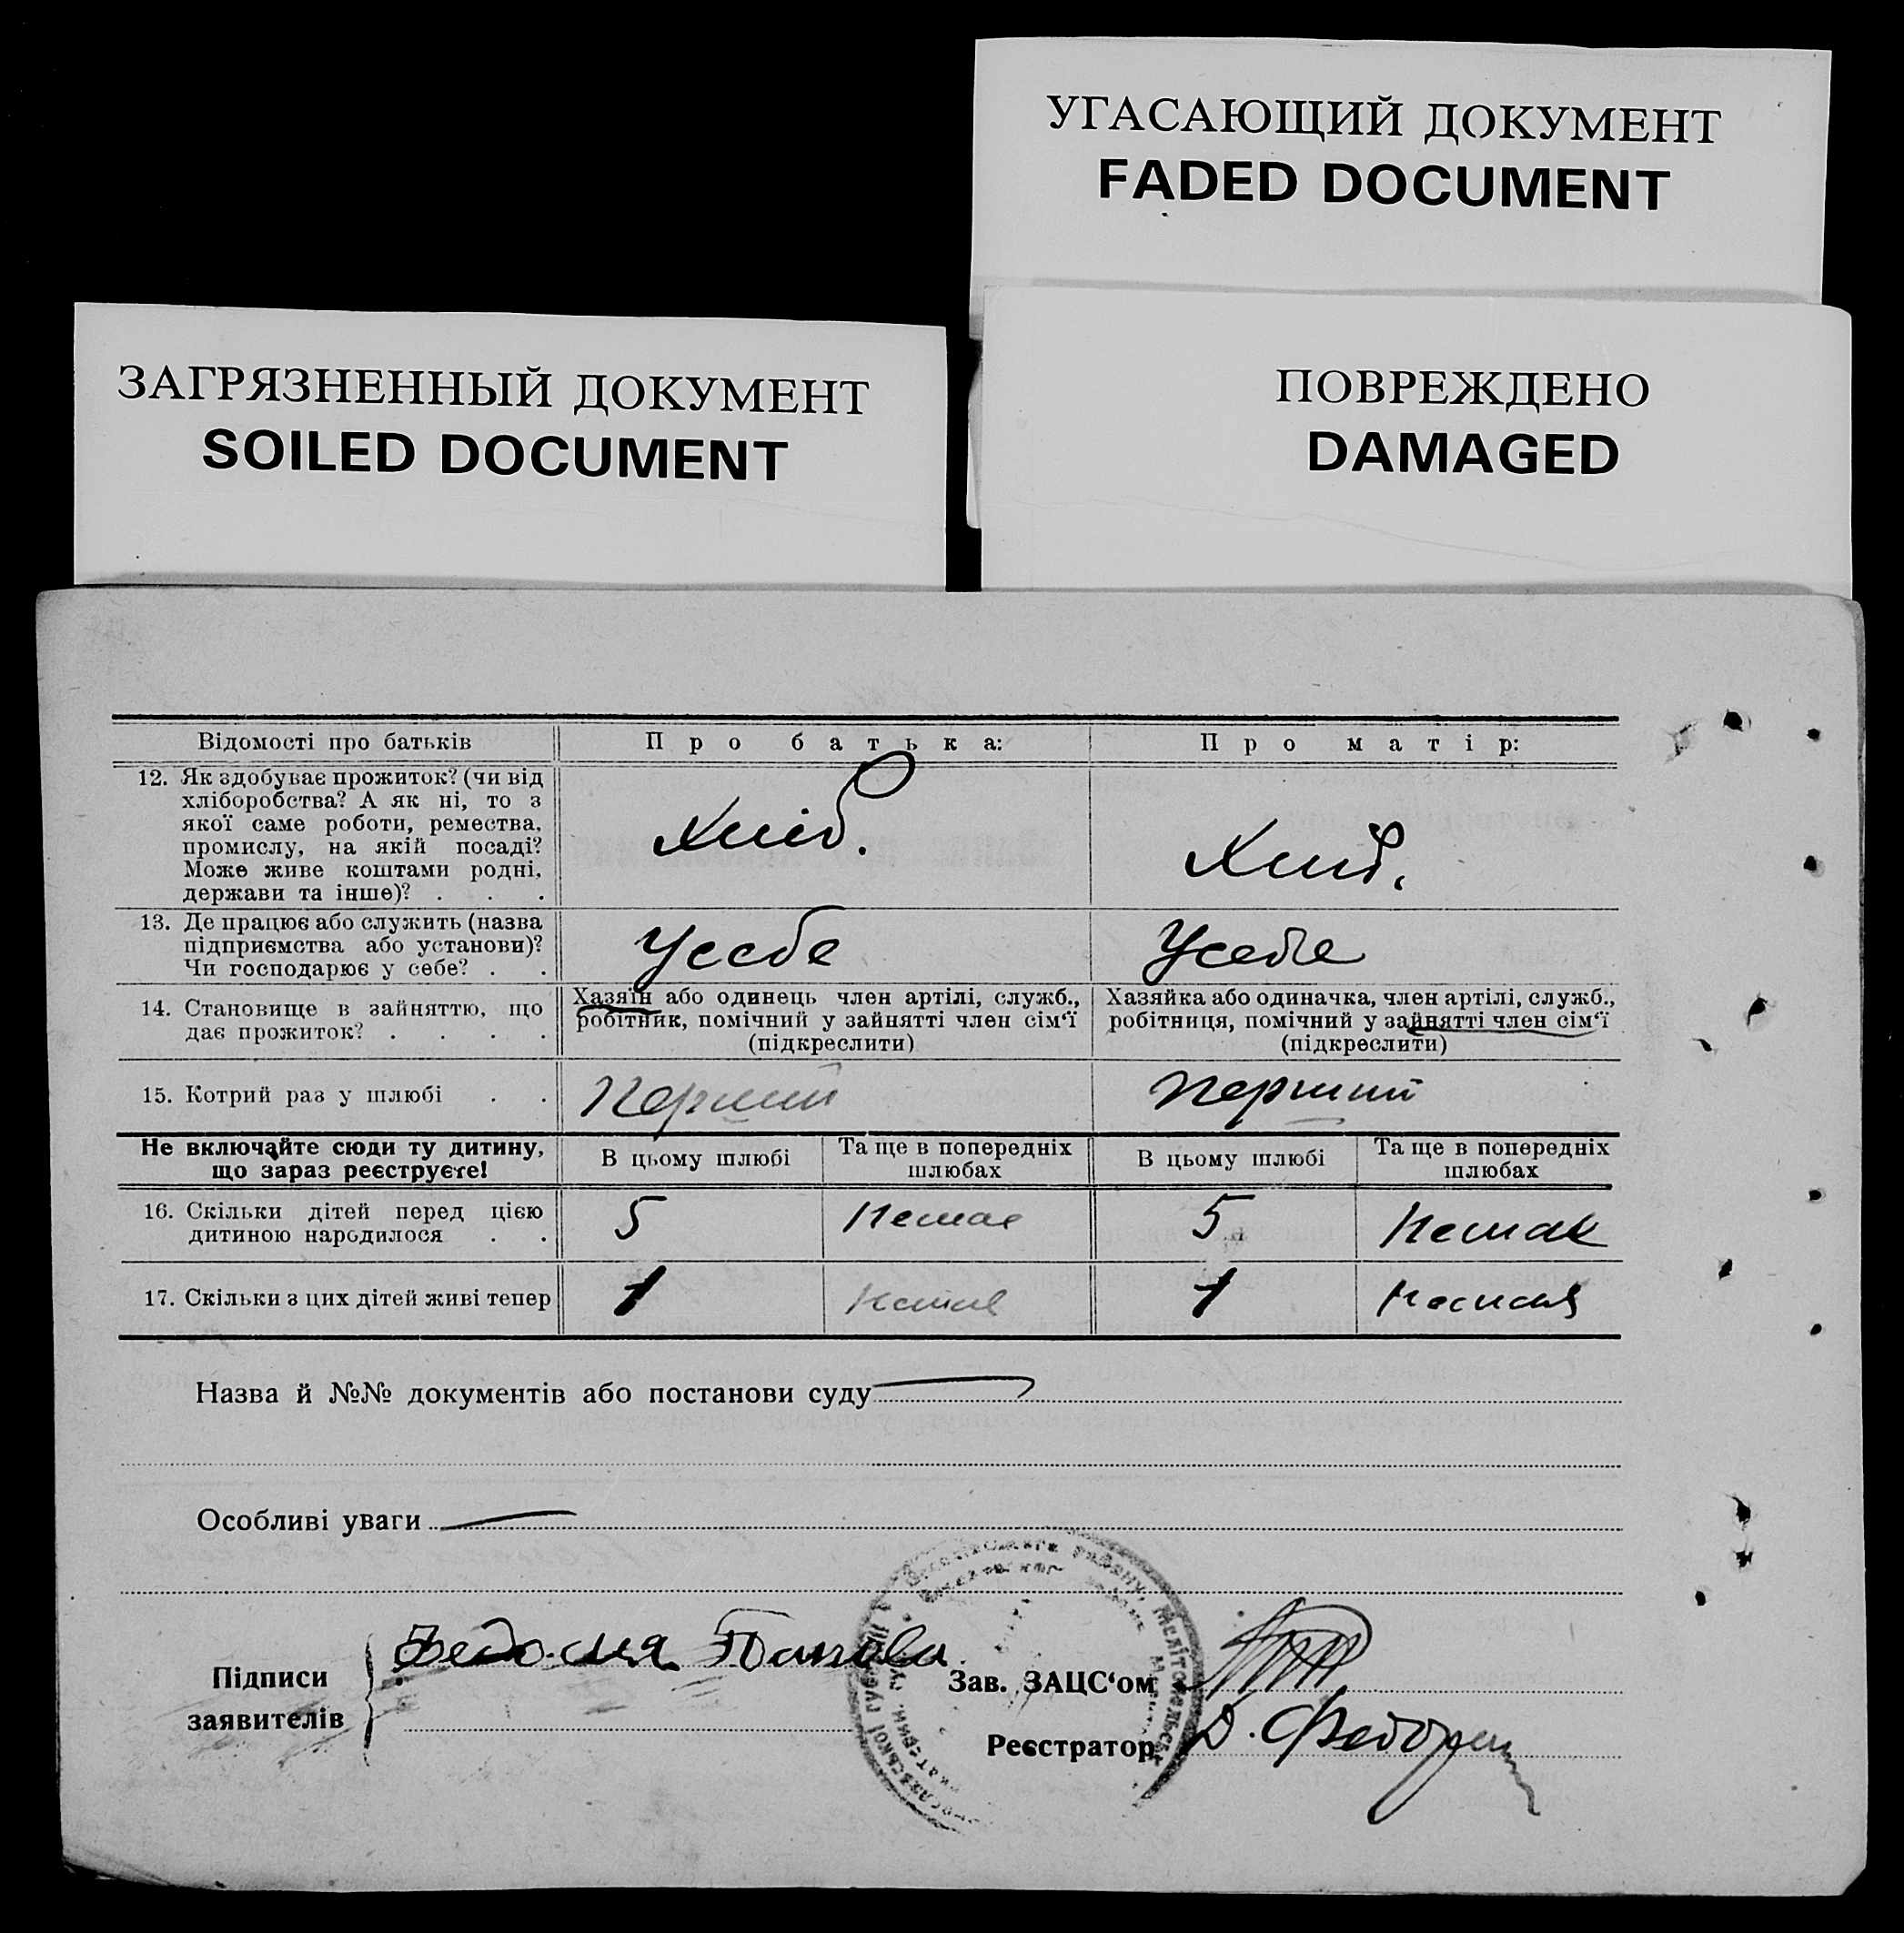 УГАСАЮЩИЙ ДОКУМЕНТ
FADED DOCUMENT
ЗАГРЯЗНЕННЫЙ ДОКУМЕНТ
SOILED DOCUMENT
ПОВРЕЖДЕНО
DAMAGED
Відомості про батьків
Про батька:
Про матір:
12. Як здобуває прожиток? (чи від
хліборобства? А як ні, то з
якої саме роботи, ремества,
промислу, на якій посаді?
Може живе коштами родні,
держави та інше)? . . .
Хліб.
Хліб.
13. Де працює або служить (назва
підприємства або установи)?
Чи господарює у себе? . .
Усебе
Усебе
14. Становище в зайняттю, що
дає прожиток? . . . .
Хазяїн або одинець член артілі, служб.,
робітник, помічний у зайнятті член сім‘ї
(підкреслити)
Хазяйка або одиначка, член артілі, служб.,
робітниця, помічний у зайнятті член сім‘ї
(підкреслити)
15. Котрий раз у шлюбі . .
Перший
Перший
Не включайте сюди ту дитину,
що зараз реєструєте!
В цьому шлюбі
Та ще в попередніх
шлюбах
В цьому шлюбі
Та ще в попередніх
шлюбах
16. Скільки дітей перед цією
дитиною народилося . .
5
Немає
5
Немає
17. Скільки з цих дітей живі тепер
1
Немає
1
Немає
Назва й №№ документів або постанови суду
Особливі уваги
Підписи
заявителів
Зав. ЗАЦС‘ом
Реєстратор
Д.
району, Мелітопольськ